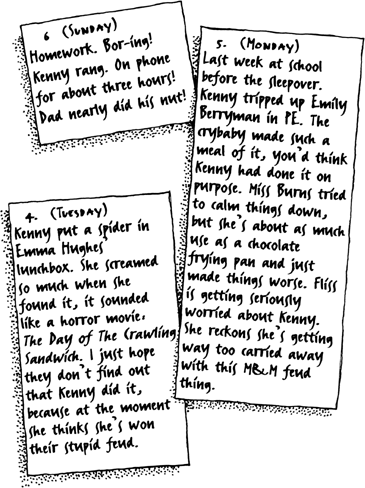 6 (SUNDAY)
Homework. Bor-ing!
Kenny rang. On phone
for about three hours!
Dad nearly did his nut!
5. (MONDAY)
Last week at school
before the sleepover.
Kenny tripped up Emily
Berryman in PE. The
crybaby made such a
meal of it, you'd think
Kenny had done it on
purpose. Miss Burns tried
to calm things down,
but she's about as much
use as a chocolate
frying pan and just
made things worse. Fliss
is getting seriously
worried about Kenny.
She reckons she's getting
way too carried away
with this M&M feud
thing.
4. (TUESDAY)
Kenny put a spider in
Emma Hughes'
lunchbox. She screamed
so much when she
found it, it sounded
like a horror movie.
The Day of The Crawling
Sandwich. I just hope
they don't find out
that Kenny did it,
because at the moment
she thinks she's won
their stupid feud.